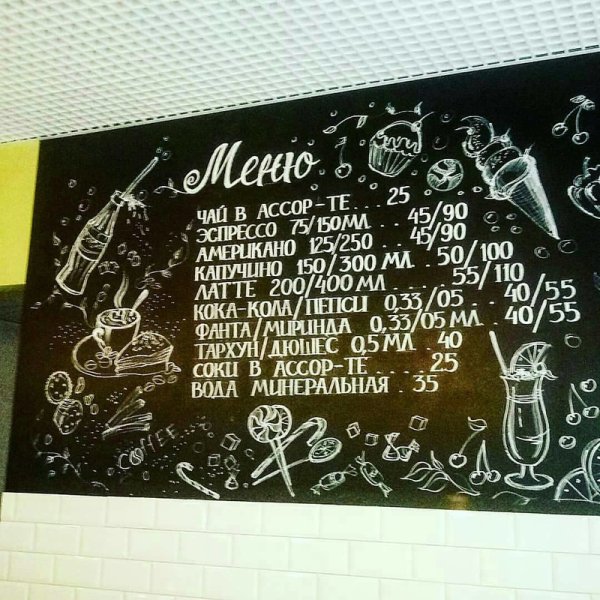 Меню
ЧАЙ В АССОР-ТЕ...25
ЭСПРЕССО 75/150 МЛ...45/90
АМЕРИКАНО 125/250...45/90
КАПУЧИНО 150/300 МЛ.50/100
ЛАТТЕ 200/400 МЛ......55/110
КОКА-КОЛА/ПЕПСИ 0,33/05..40/55
ФАНТА/МИРИНДА 0,33/05 МЛ.40/55
ТАРХУН/ДЮШЕС 0,5 МЛ.40
СОКИ В АССОР-ТЕ....25
ВОДА МИНЕРАЛЬНАЯ.35
COFFEE